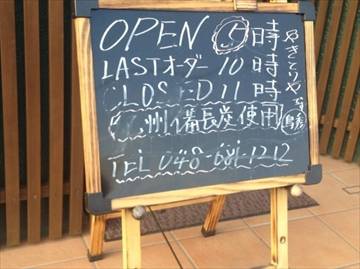 OPEN 5時
LASTオーダー10時
CLOSED 11時
州備長炭使用
TEL 048-681-1212
やきとりや